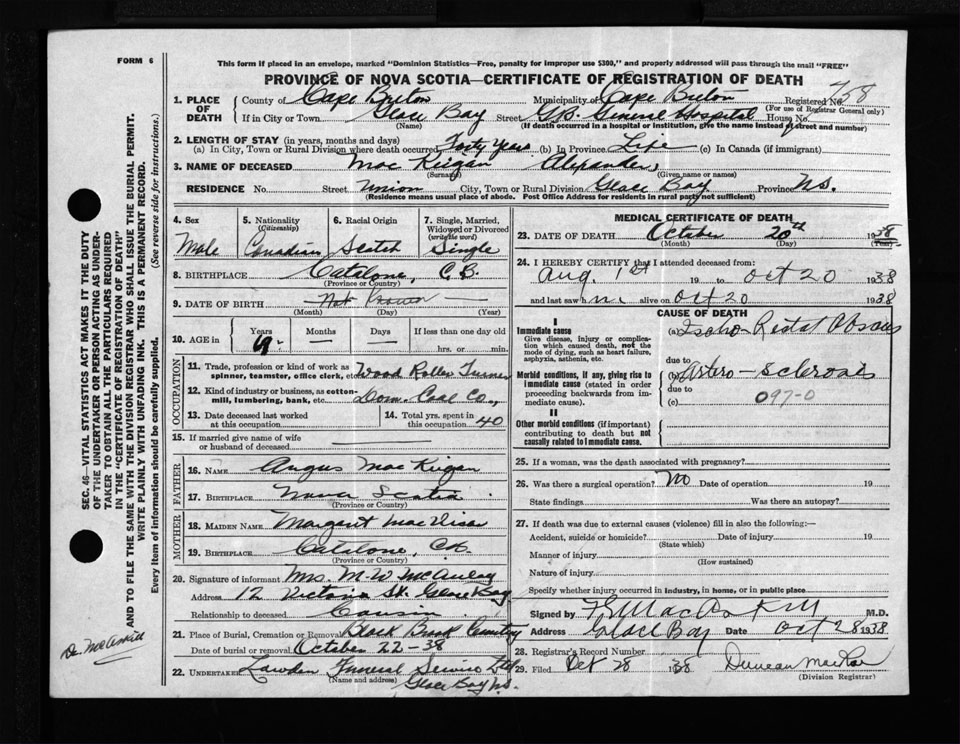 FORM 6
This form if placed in an envelope, marked "Dominion Statistics—Free, penalty for improper use $300," and properly addressed will pass through the mail "FREE"
PROVINCE OF NOVA SCOTIA—CERTIFICATE OF REGISTRATION OF DEATH
1. PLACE OF DEATH
County of Cape Breton Municipality of Cape Breton Registered No. 758
(For use of Registrar General only)
If in City or Town Glace Bay Street G.B. General Hospital House No.
(Name) (If death occurred in a hospital or institution, give the name instead of street and number)
2. LENGTH OF STAY (in years, months and days)
(a) In City, Town or Rural Division where death occurred Forty Years (b) In Province Life (c) In Canada (if immigrant)
3. NAME OF DECEASED Mac Keigan Alexander,
(Surname) (Given name or names)
RESIDENCE No. Street Union City, Town or Rural Division Glace Bay Province N.S.
(Residence means usual place of abode. Post Office Address for residents in rural parts not sufficient)
4. Sex Male
5. Nationality (Citizenship) Canadian
6. Racial Origin Scotch
7. Single, Married, Widowed or Divorced (write the word) Single
8. BIRTHPLACE Catalone, C.B.
(Province or Country)
9. DATE OF BIRTH Not Known
(Month) (Day) (Year)
10. AGE in Years 69 Months — Days — If less than one day old
hrs. or min.
OCCUPATION
11. Trade, profession or kind of work as spinner, teamster, office clerk, etc. Wood Roller Turner
12. Kind of industry or business, as cotton mill, lumbering, bank, etc. Dom. Coal Co.,
13. Date deceased last worked at this occupation
14. Total yrs. spent in this occupation 40
15. If married give name of wife or husband of deceased
FATHER
16. NAME Angus Mac Keigan
17. BIRTHPLACE Nova Scotia
(Province or Country)
MOTHER
18. MAIDEN NAME Margaret
19. BIRTHPLACE Catalone, C.B.
(Province or Country)
20. Signature of informant Mrs. M. W. McAulay
Address 12 Victoria St. Glace Bay
Relationship to deceased Cousin
21. Place of Burial, Cremation or Removal Black Brook Cemetery
Date of burial or removal October 22-38
22. UNDERTAKER Funeral Service Ltd
(Name and address) Glace Bay N.S.
MEDICAL CERTIFICATE OF DEATH
23. DATE OF DEATH October 20th 1938
(Month) (Day) (Year)
24. I HEREBY CERTIFY that I attended deceased from:
Aug. 1st 19 to Oct 20 1938
and last saw h im alive on Oct 20 1938
CAUSE OF DEATH
I
Immediate cause
Give disease, injury or complication which caused death, not the mode of dying, such as heart failure, asphyxia, asthenia, etc.
(a) Ischio-Rectal Abscess
due to
Morbid conditions, if any, giving rise to immediate cause (stated in order proceeding backwards from immediate cause).
(b) Arterio-Sclerosis
due to
(c) 097-0
II
Other morbid conditions (if important) contributing to death but not causally related to immediate cause.
25. If a woman, was the death associated with pregnancy?
26. Was there a surgical operation? No Date of operation 19
State findings Was there an autopsy?
27. If death was due to external causes (violence) fill in also the following:—
Accident, suicide or homicide? Date of injury 19
(State which)
Manner of injury
(How sustained)
Nature of injury
Specify whether injury occurred in industry, in home, or in public place
Signed by M.D.
Address Glace Bay Date Oct 28 1938
28. Registrar's Record Number
29. Filed Oct 28 1938 Duncan MacRae
(Division Registrar)
SEC. 46—VITAL STATISTICS ACT MAKES IT THE DUTY OF THE UNDERTAKER OR PERSON ACTING AS UNDERTAKER TO OBTAIN ALL THE PARTICULARS REQUIRED IN THE "CERTIFICATE OF REGISTRATION OF DEATH"
AND TO FILE THE SAME WITH THE DIVISION REGISTRAR WHO SHALL ISSUE THE BURIAL PERMIT.
WRITE PLAINLY WITH UNFADING INK. THIS IS A PERMANENT RECORD.
Every item of information should be carefully supplied. (See reverse side for instructions.)